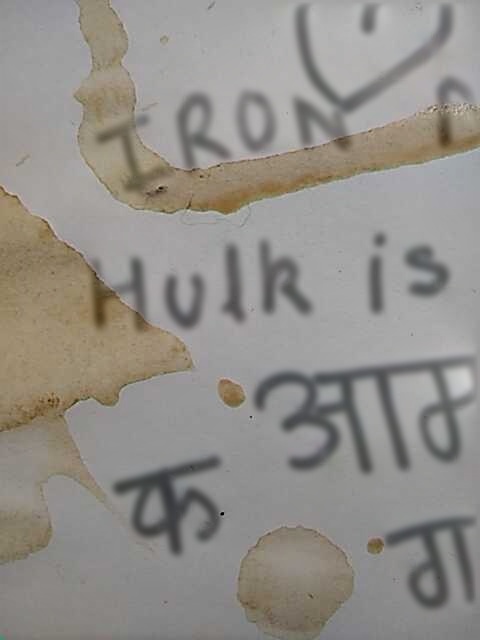 IRON
Hulk is
आम
क
ग